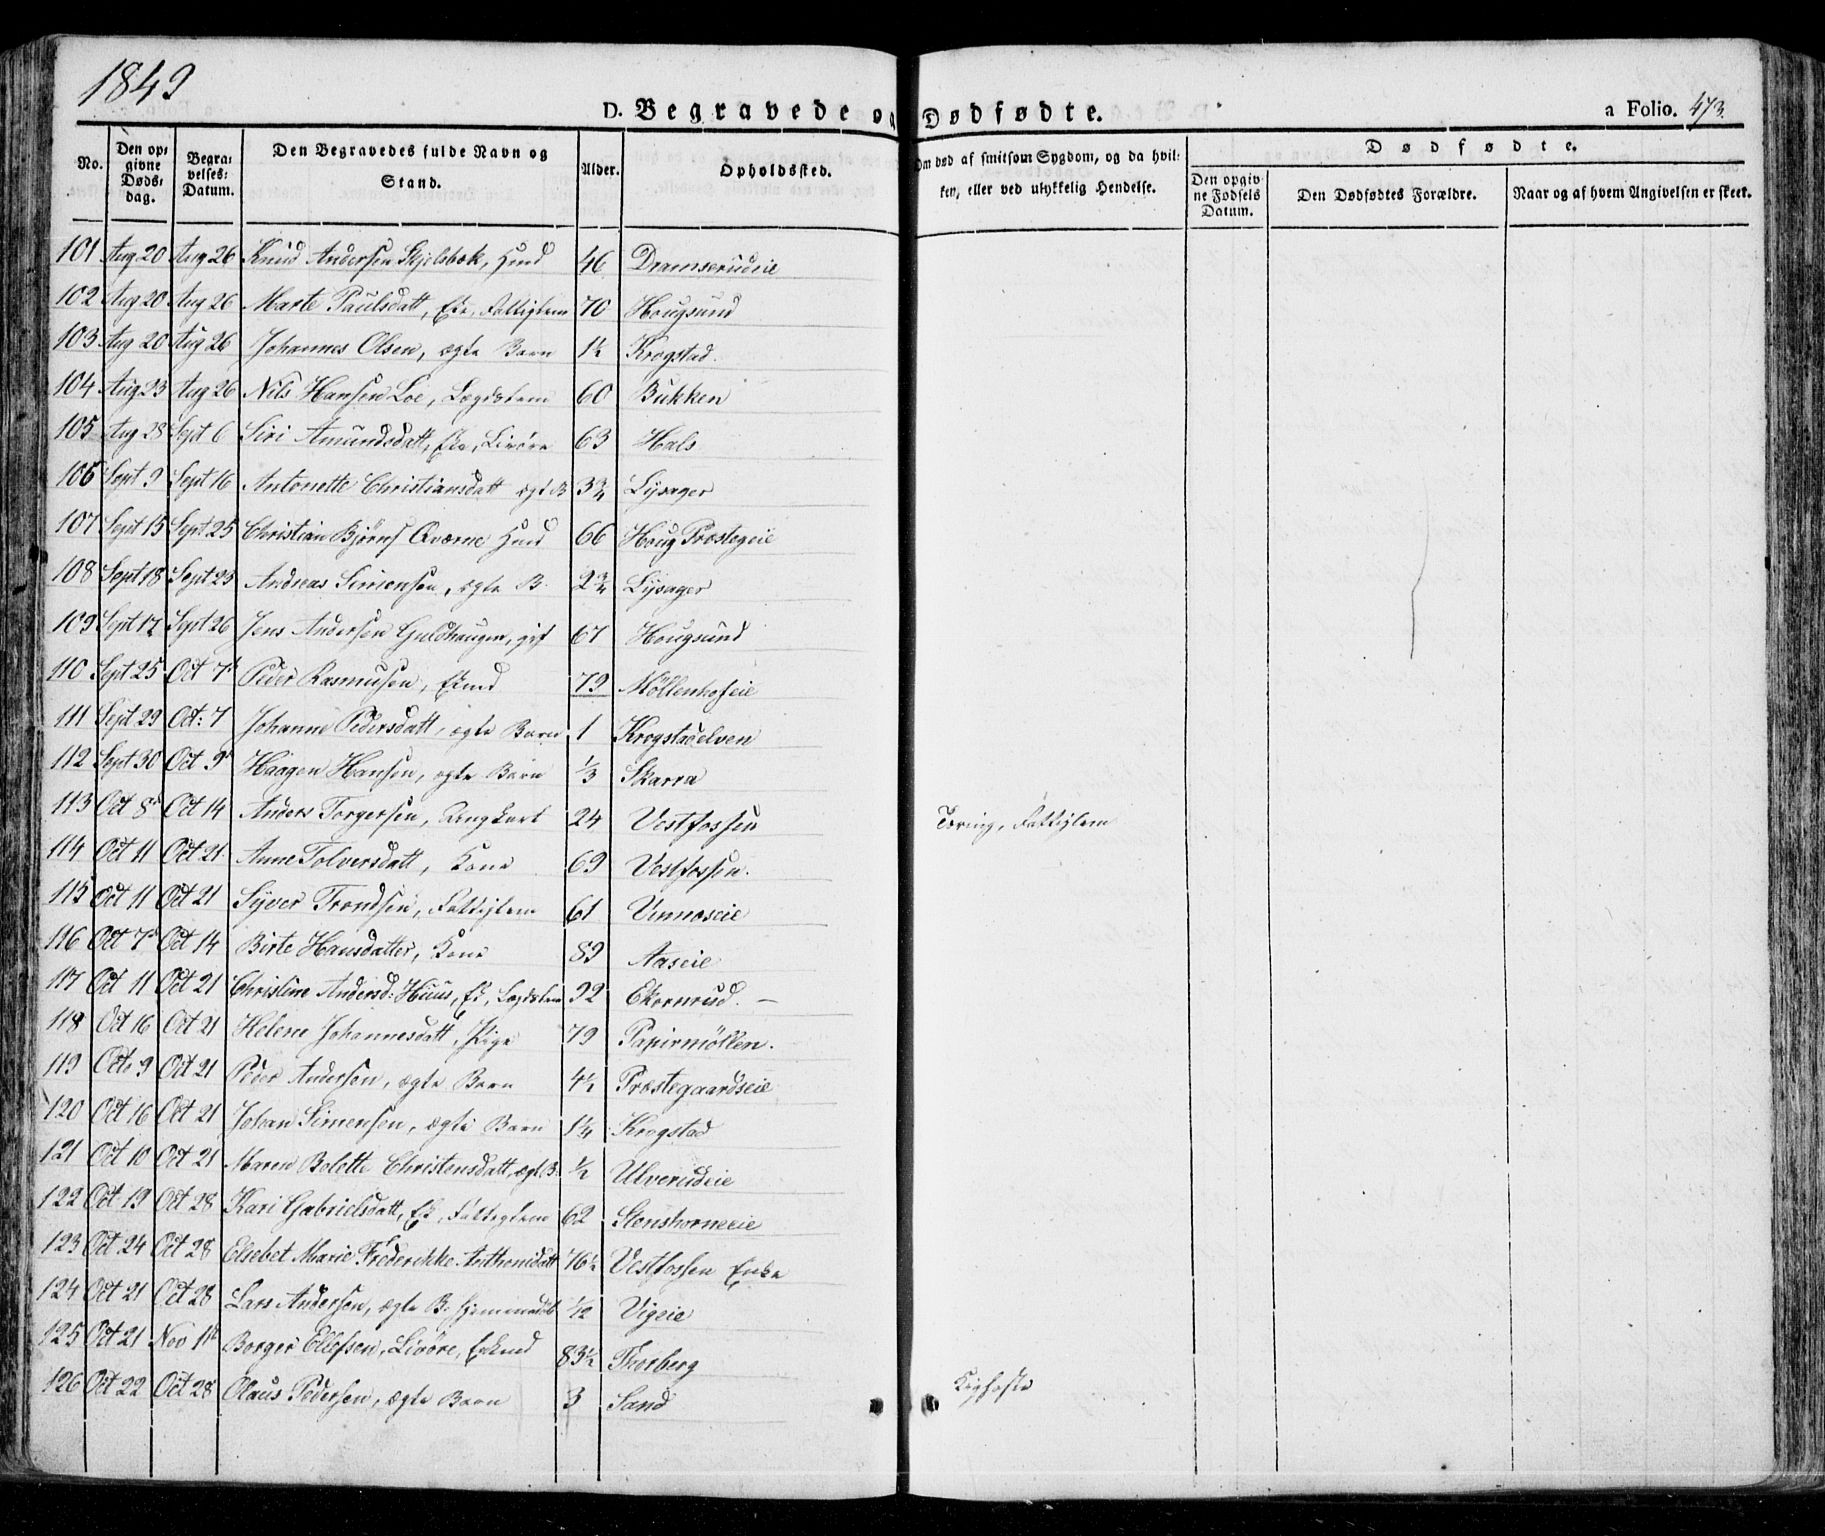 1849
D. Begravede og Dødfødte.
a Folio. 473.
No.
Den opgivne Dødsdag.
Begravelses: Datum.
Den Begravedes fulde Navn og Stand.
Alder.
Opholdssted.
Om død af smitsom Sygdom, og da hvilken, eller ved ulykkelig Hendelse.
Dødfødte.
Den opgivne Fødsels Datum.
Den Dødfødtes Forældre.
Naar og af hvem Angivelsen er skeet.
101 Aug 20 Aug 26 Knud Andersen Skjelsbek, Hmd 46 Dramserudeie
102 Aug 20 Aug 26 Marte Paulsdatt, Eke, Fattiglem 70 Hougsund
103 Aug 20 Aug 26 Johannes Olsen, ægte Barn 1½ Krogstad.
104 Aug 23 Aug 26 Nils Hansen Loe, Lægdslem 60 Bukken
105 Aug 28 Sept 6 Siri Amundsdatt, Eke, Livøre 63 Hals
106 Sept 9 Sept 16 Antonette Christiansdatt ægt B 3¾ Lysager
107 Sept 15 Sept 25 Christian Bjørns Qværne Hmd 66 Houg Præstegeie
108 Sept 18 Sept 25 Andreas Simensen, ægte B. 2¾ Lysager
109 Sept 17 Sept 26 Jens Andersen Guldhaugen, gift 67 Hougsund
110 Sept 25 Oct 7d Peder Rasmusen, Ekmd 79 Møllenhofeie
111 Sept 29 Oct: 7 Johanne Pedersdatt, ægte Barn 1 Krogstadelven
112 Sept 30 Oct 9d Haagen Hansen, ægte Barn ⅓ Skarra
113 Oct 8d Oct 14 Anders Torgersen, Ungkarl 24 Vestfossen Tæring, Fattiglem
114 Oct 11 Oct 21 Anne Tolversdatt, Kone 69 Vestfossen.
115 Oct 11 Oct 21 Syver Trondsen, Fattiglem 61 Vinnæseie
116 Oct 7d Oct 14 Birte Hansdatter, Kone 89 Aaseie
117 Oct 11 Oct 21 Christine Andersd: Huus, Ek, Lægdslem 92 Ekornrud. —
118 Oct 16 Oct 21 Helene Johannesdatt, Pige 79 Papirmøllen.
119 Oct. 9 Oct 21 Peder Andersen, ægte Barn 4½ Præstegaardseie
120 Oct 16 Oct 21 Johan Simensen, ægte Barn 1¼ Krogstad
121 Oct 10 Oct 21 Maren Bolette Christensdatt, ægt B. ½ Ulverudeie
122 Oct 19 Oct 28 Kari Gabrielsdatt, Ek, Fattiglem 62 Stenshorneeie
123 Oct 24 Oct 28 Elsebet Marie Frederikke Anthonidatt 76½ Vestfossen Enke
124 Oct 21 Oct 28 Lars Andersen, ægte B. hjemmedøbt 1/12 Vigeie
125 Oct 21 Nov 11d Borger Ellefsen, Livøre, Enkmd 83½ Thorberg
126 Oct 22 Oct 28 Olaus Pedersen, ægte Barn 3 Sand Kighoste